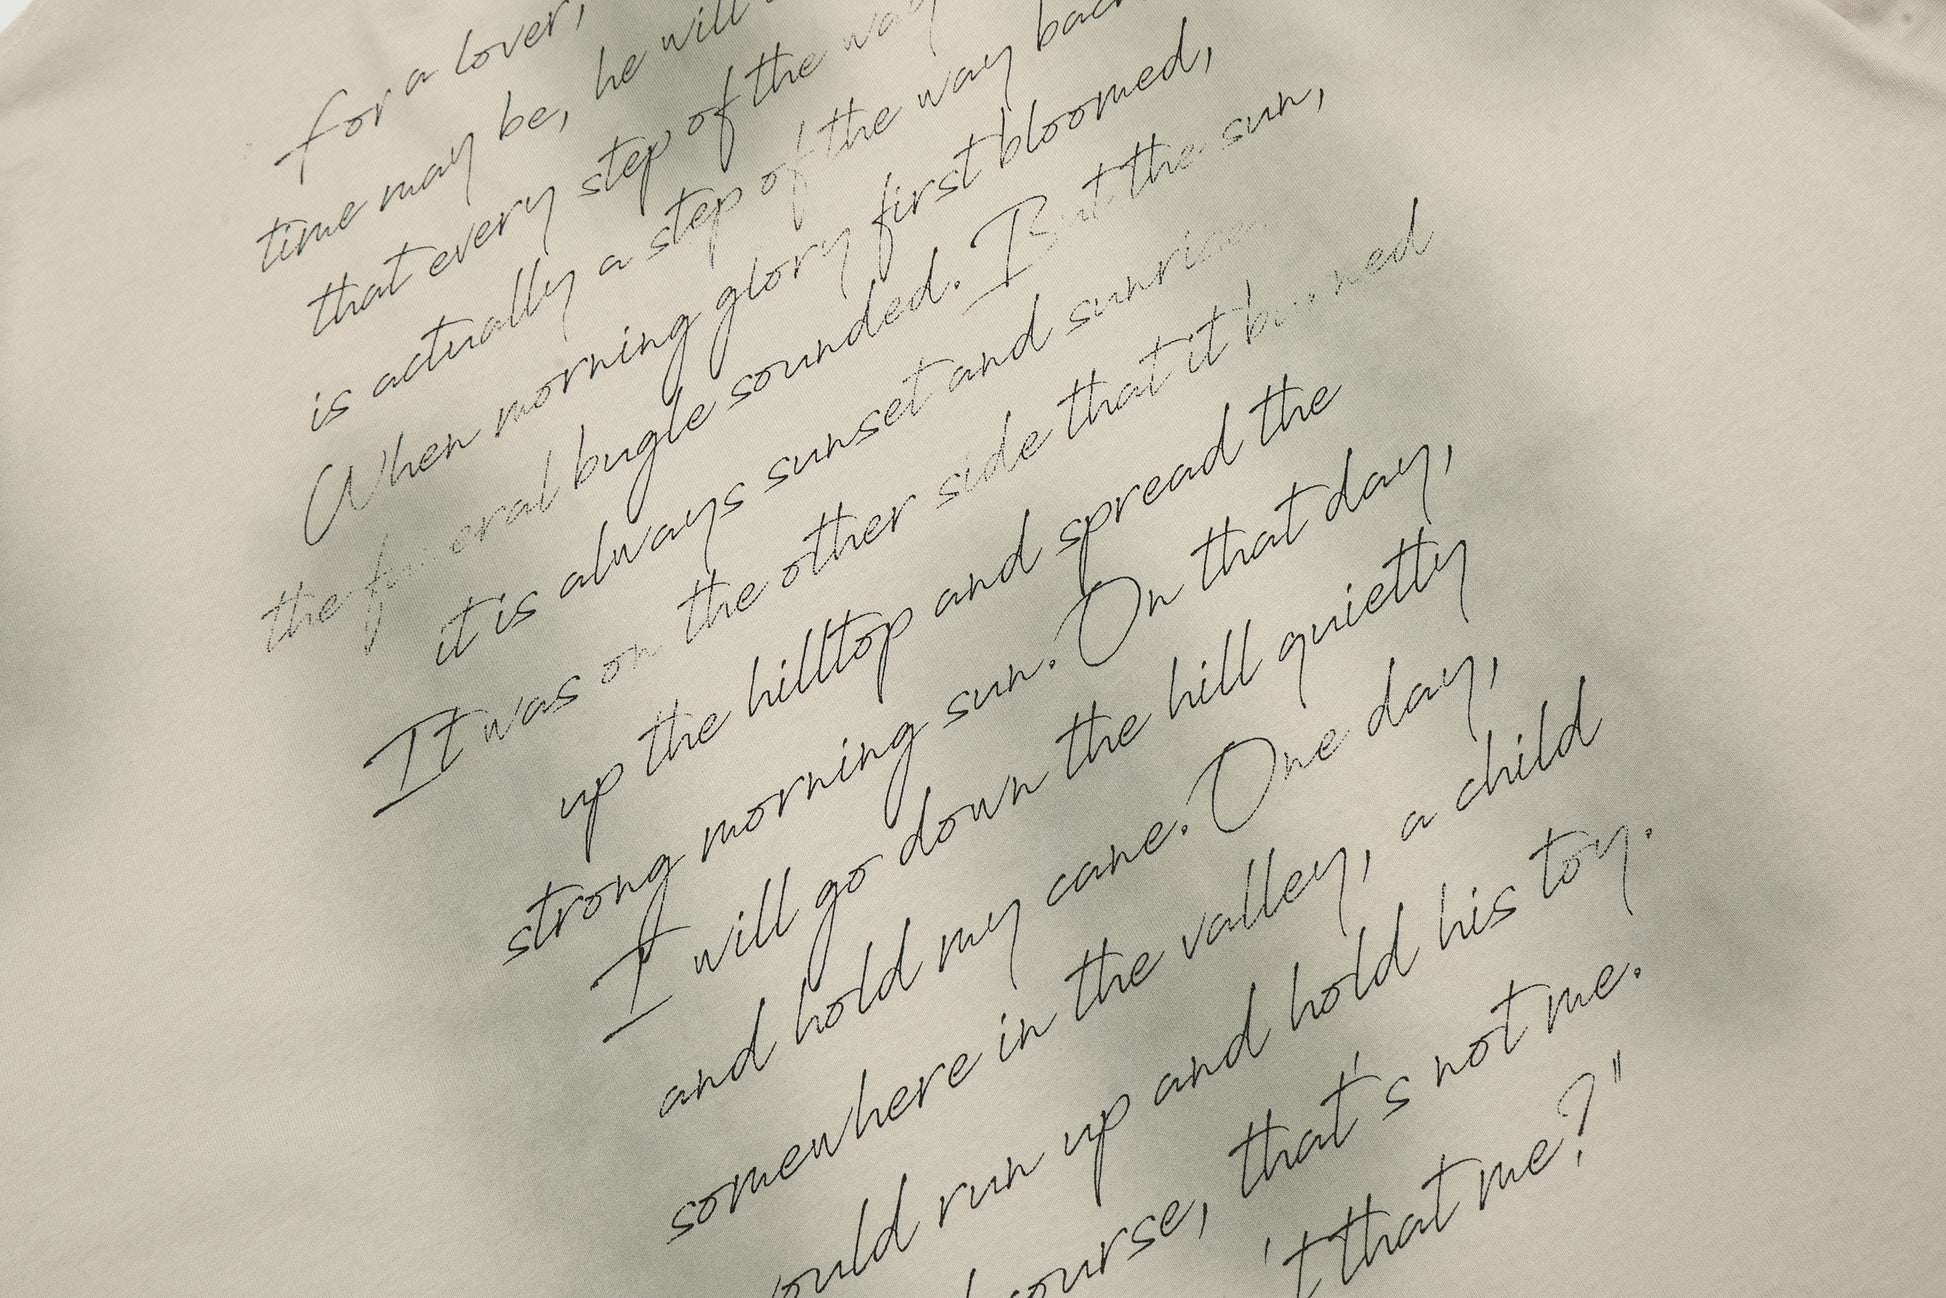 for a lover,
time may be, he will
that every step of the way
is actually a step of the way back
When morning glory first bloomed,
the funeral bugle sounded. But the sun,
it is always sunset and sunrise.
It was on the other side that it burned
up the hilltop and spread the
strong morning sun. On that day,
I will go down the hill quietly
and hold my cane. One day,
somewhere in the valley, a child
ould run up and hold his toy.
course, that's not me.
't that me?"